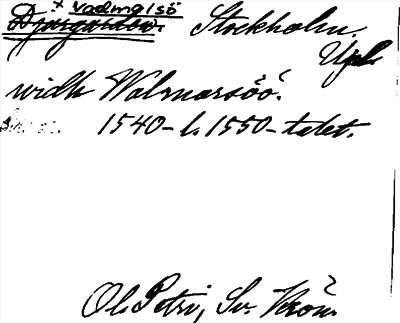 x Vadinglsö
Djurgården. Stockholm.
Upl.
widh Walmarsöö.
1540- l. 1550-talet.
Ol. Petri, Sv. Krön.